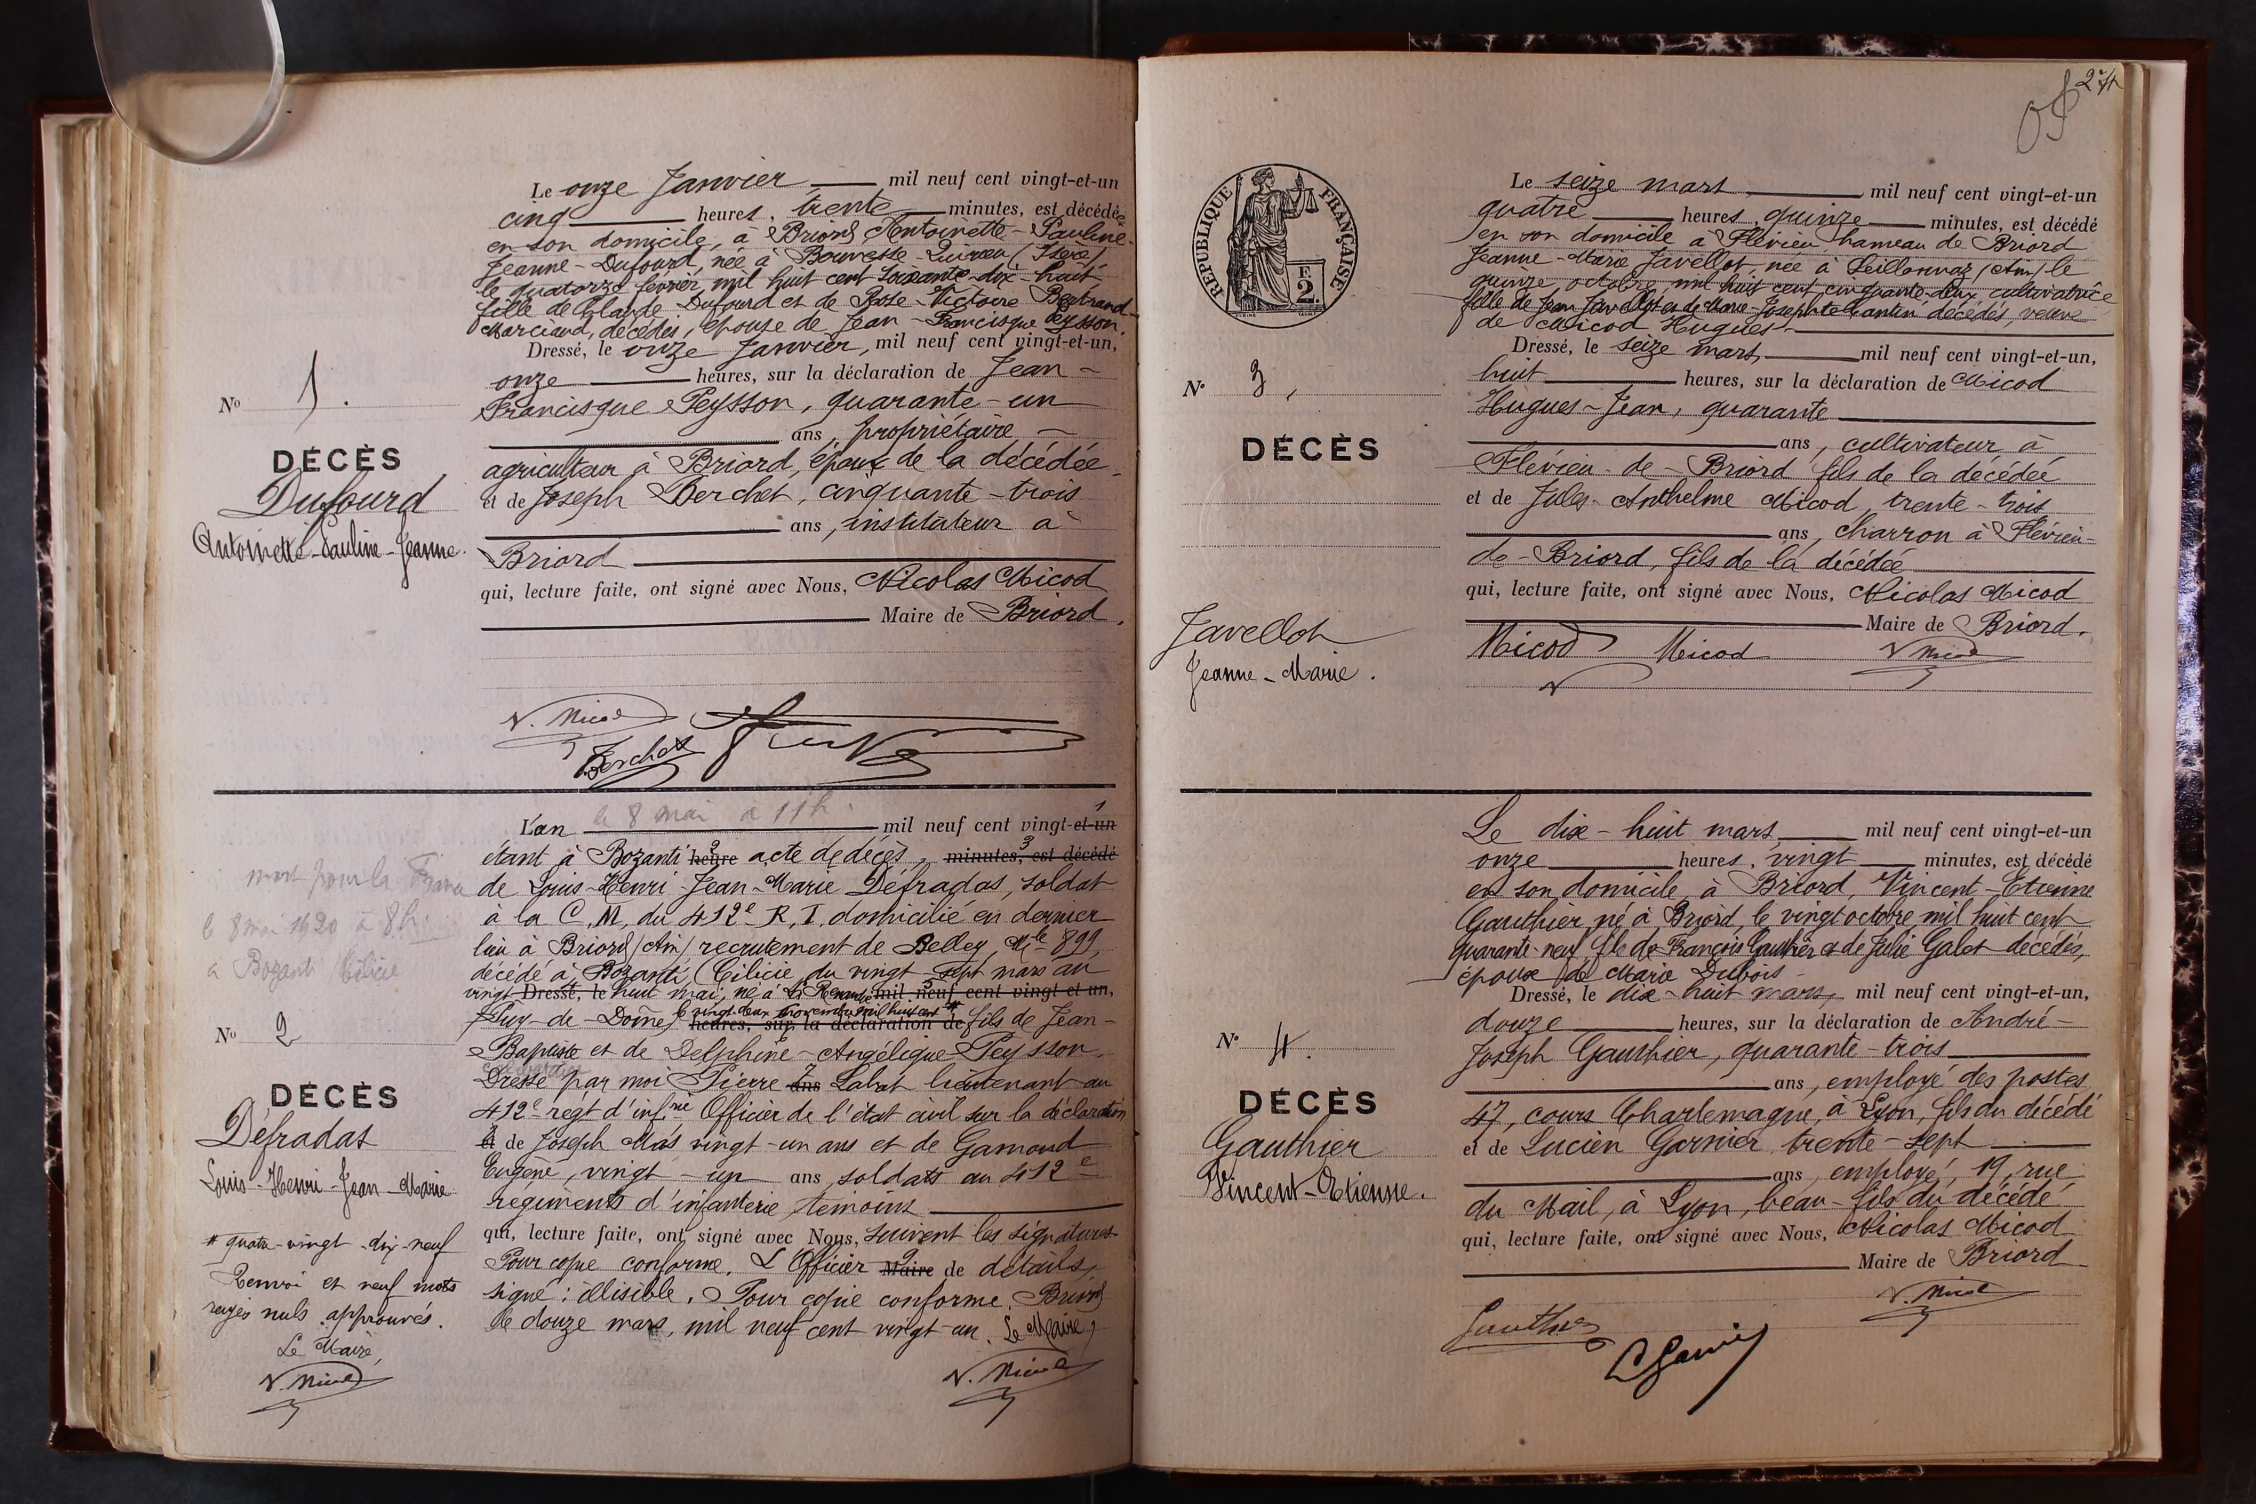 Le onze Janvier mil neuf cent vingt-et-un
cinq heures, trente minutes, est décédée
en son domicile, à Briord Antoinette-Pauline-
Jeanne-Dufourd, née à Bouvesse-Quirieu (Isère)
le quatorze février, mil huit cent soixante-dix-huit
fille de Claude Dufourd et de Rose-Victoire Bertrand-
Marciand, décédés, épouse de Jean-Francisque Peysson.
Dressé, le onze Janvier, mil neuf cent vingt-et-un,
onze heures, sur la déclaration de Jean-
Francisque Peysson, quarante-un
ans, propriétaire-
agriculteur à Briord, époux de la décédée
et de Joseph Berchet, cinquante-trois
ans, instituteur à
Briord
qui, lecture faite, ont signé avec Nous, Nicolas Micod
Maire de Briord.
No 1.
DÉCÈS
Dufourd
Antoinette-Pauline-Jeanne.
N. Micod
Berchet
le 8 mai à 11h.
L'an mil neuf cent vingt-et-un 1
étant à Bozanti heure 2 acte de décès, minutes, est décédé 3
de Louis-Henri-Jean-Marie Défradas, soldat
à la C. M. du 412e R. I. domicilié en dernier
lieu à Briord (Ain) recrutement de Belley, Mle 899,
décédé à Bozanti, Cilicie, du vingt-sept mars au
vingt Dressé, le huit mai, né à mil neuf cent vingt-et-un,
Puy-de-Dôme, le vingt-deux novembre mil huit cent # heures, sur la déclaration de fils de Jean-
Baptiste et de Delphine-Angélique-Peysson.
Dressé par moi Pierre ans Labat lieutenant au
412e régt d'infrie Officier de l'état civil sur la déclaration
et de Joseph Mas vingt-un ans et de Gamond
Eugène, vingt-un ans, soldats au 412e
regiments d'infanterie témoins
qui, lecture faite, ont signé avec Nous, suivent les signatures
Pour copie conforme. L'Officier Maire de détails,
signé : illisible. Pour copie conforme. Briord
le douze mars, mil neuf cent vingt-un. Le Maire,
N. Micod
mort pour la France
le 8 mai 1920 à 8h.
à Bozanti Cilicie
No 2
DÉCÈS
Défradas
Louis-Henri-Jean-Marie
# quatre-vingt-dix-neuf
Renvoi et neuf mots
rayés nuls approuvés.
Le Maire,
N. Micod
Le seize mars mil neuf cent vingt-et-un
quatre heures, quinze minutes, est décédé
en son domicile à Flévieu hameau de Briord
Jeanne-Marie Javellot, née à Seillonnaz (Ain) le
quinze octobre, mil huit cent cinquante-deux cultivatrice
fille de Jean Javellot et de Marie-Josephte Cantin décédés, veuve
de Micod Hugues
Dressé, le seize mars, mil neuf cent vingt-et-un,
huit heures, sur la déclaration de Micod
Hugues-Jean, quarante
ans, cultivateur, à
Flévieu-de-Briord fils de la décédée
et de Jules-Anthelme Micod, trente-trois
ans, charron à Flévieu-
de-Briord, fils de la décédée
qui, lecture faite, ont signé avec Nous, Nicolas Micod
Maire de Briord.
Micod Micod N. Micod
RÉPUBLIQUE FRANÇAISE
F.
2.
No 3,
DÉCÈS
Javellot
Jeanne-Marie.
Le dix-huit mars, mil neuf cent vingt-et-un
onze heures, vingt minutes, est décédé
en son domicile, à Briord, Vincent-Etienne
Gauthier, né à Briord, le vingt octobre, mil huit cent
quarante-neuf, fils de François Gauthier et de Julie Galet décédés,
époux de Marie Dubois
Dressé, le dix-huit mars, mil neuf cent vingt-et-un,
douze heures, sur la déclaration de André-
Joseph Gauthier, quarante-trois
ans, employé des postes
47, cours Charlemagne, à Lyon, fils du décédé
et de Lucien Garnier, trente-sept
ans, employé, 19, rue
du Mail, à Lyon, beau-fils du décédé
qui, lecture faite, ont signé avec Nous, Nicolas Micod
Maire de Briord
N. Micod
Gauthier
No 4.
DÉCÈS
Gauthier
Vincent-Etienne.